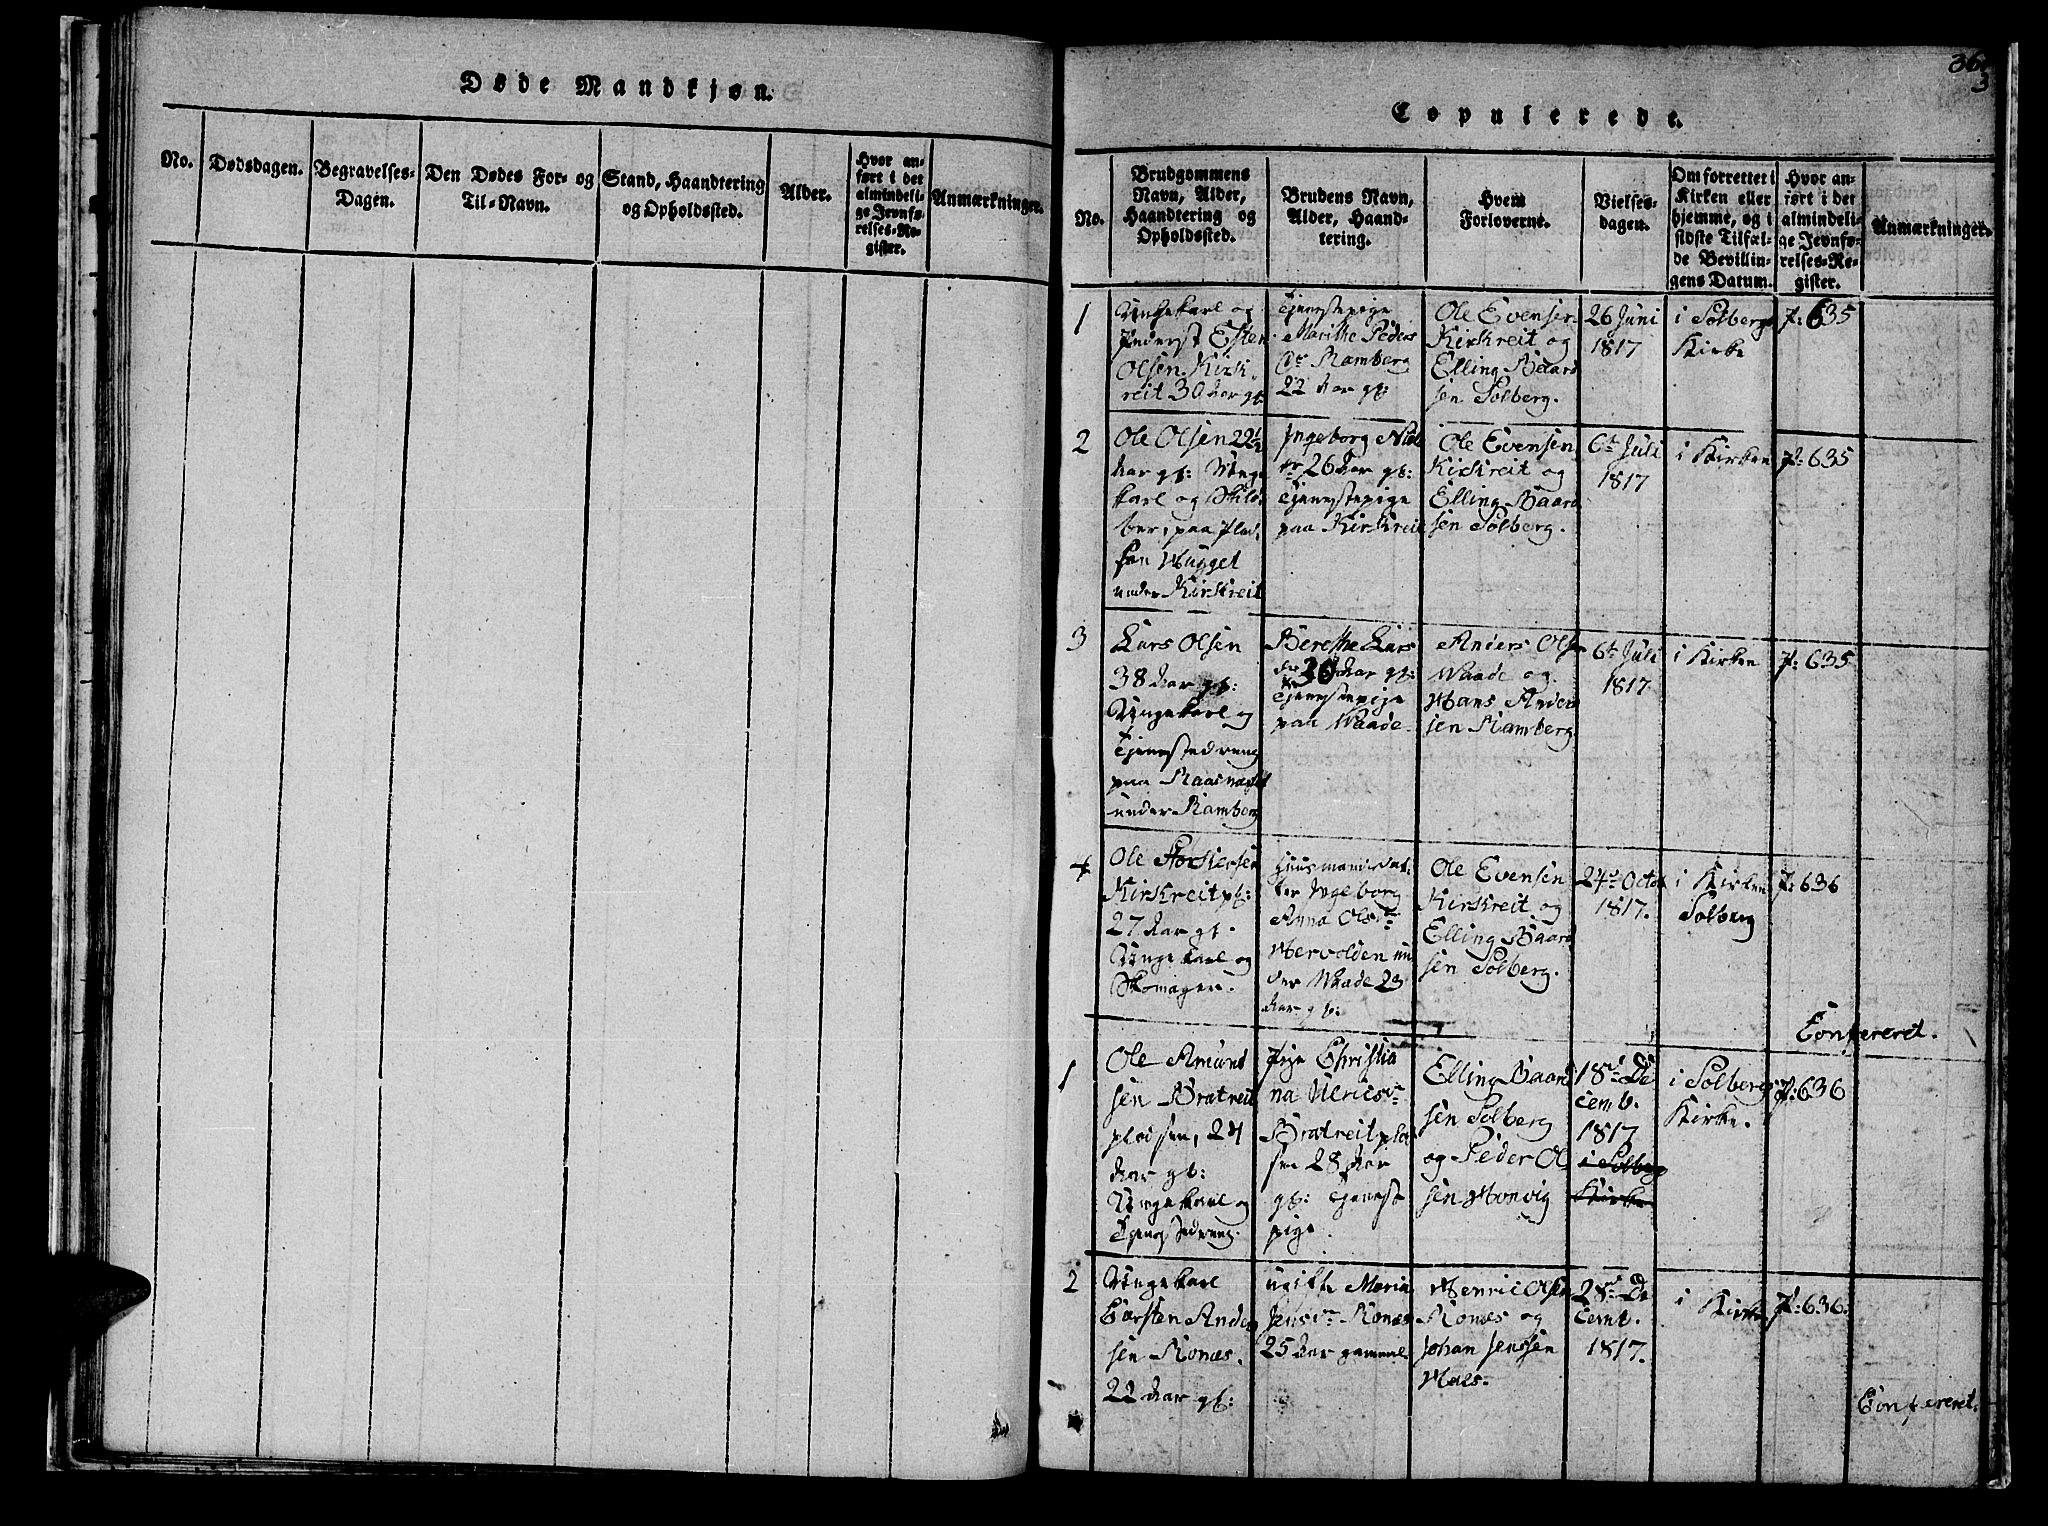 Døde Mandkjøn.
No.
Dødsdagen.
Begravelses-
Dagen.
Den Dødes For- og
Til-Navn.
Stand, Haandtering
og Opholdssted.
Alder.
Hvor an-
ført i det
almindeli-
ge Jevnfø-
relses-Re-
gister.
Anmærkninger.
36
3
Copulerede.
No.
Brudgommens
Navn, Alder,
Haandtering og
Opholdssted.
Brudens Navn,
Alder, Haand-
tering.
Hvem
Forloverne.
Vielses-
dagen.
Om forrettet i
Kirken eller
hjemme, og i
sidste Tilfæl-
de Bevillin-
gens Datum.
Hvor an-
ført i det
almindeli-
ge Jevnfø-
relses-Re-
gister.
Anmærkninger.
1
Ungekarl og
Inderst Esten
Olsen Kirk-
reit 30 Aar gl:
Tjenestepige
Marithe Peders
Dr Ramberg
22 Aar gl:
Ole Evensen
Kirkreit og
Elling Baard
sen Solberg.
26 Juni
1817
i Solbergs
Kirke
P: 635
2
Ole Olsen 22½
Aar gl: Unge
karl og
paa Plad-
sen Hugget
under Kirkreit
Ingeborg Niels
dr 26 Aar gl:
Tjenestepige
paa Kirkreit
Ole Evensen
Kirkreit og
Elling Baard
sen Solberg.
6te Juli
1817
i Kirken
P: 635
3
Lars Olsen
38 Aar gl:
Ungekarl og
Tjenestedreng
paa
under Ramberg
Berethe Lars
dr 30 Aar gl:
Tjenestepige
paa Waade.
Anders Olsen
Waade og
Hans Ander
sen Ramberg.
6te Juli
1817
i Kirken
P: 635
4
Ole
Kirkreit pl:
27 Aar gl.
Ungekarl og
Skomager.
Huusmands dat-
ter Ingeborg
Anna Olsdr
Hervolden un
der Waade 23
Aar gl:
Ole Evensen
Kirkreit og
Elling Baard
sen Solberg.
24de Octob
1817.
i Kirken
Solberg
P: 636
Confereret.
1
Ole Amund
sen Bratreit
pladsen, 24
Aar gl:
Ungekarl og
Tjenestedreng.
Pige Christia
na Ulricsdr
Bratreitpla
sen 28 Aar
gl: Tjenest
pige.
Elling Baard
sen Solberg
og Peder Ol
sen Honvig
18de De
cemb.
1817
i Solberg
Kirke
i Solbergs
Kirke.
P: 636
2
Ungekarl
Carsten Ander
sen Ronæs.
22 Aar gl:
ugifte Maria
Jensdr Ronæs
25 Aar gammel.
Henric Olsen
Ronæs og
Johan Jenssen
Hals.
28de De
cemb.
1817.
i Kirke
P: 636.
Confereret.